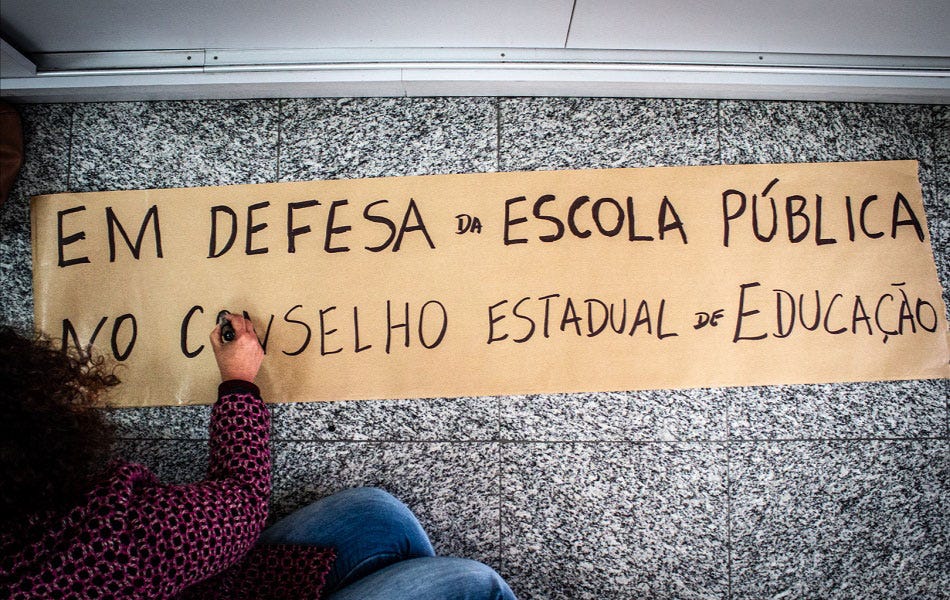 EM DEFESA DA ESCOLA PÚBLICA
NO CONSELHO ESTADUAL DE EDUCAÇÃO